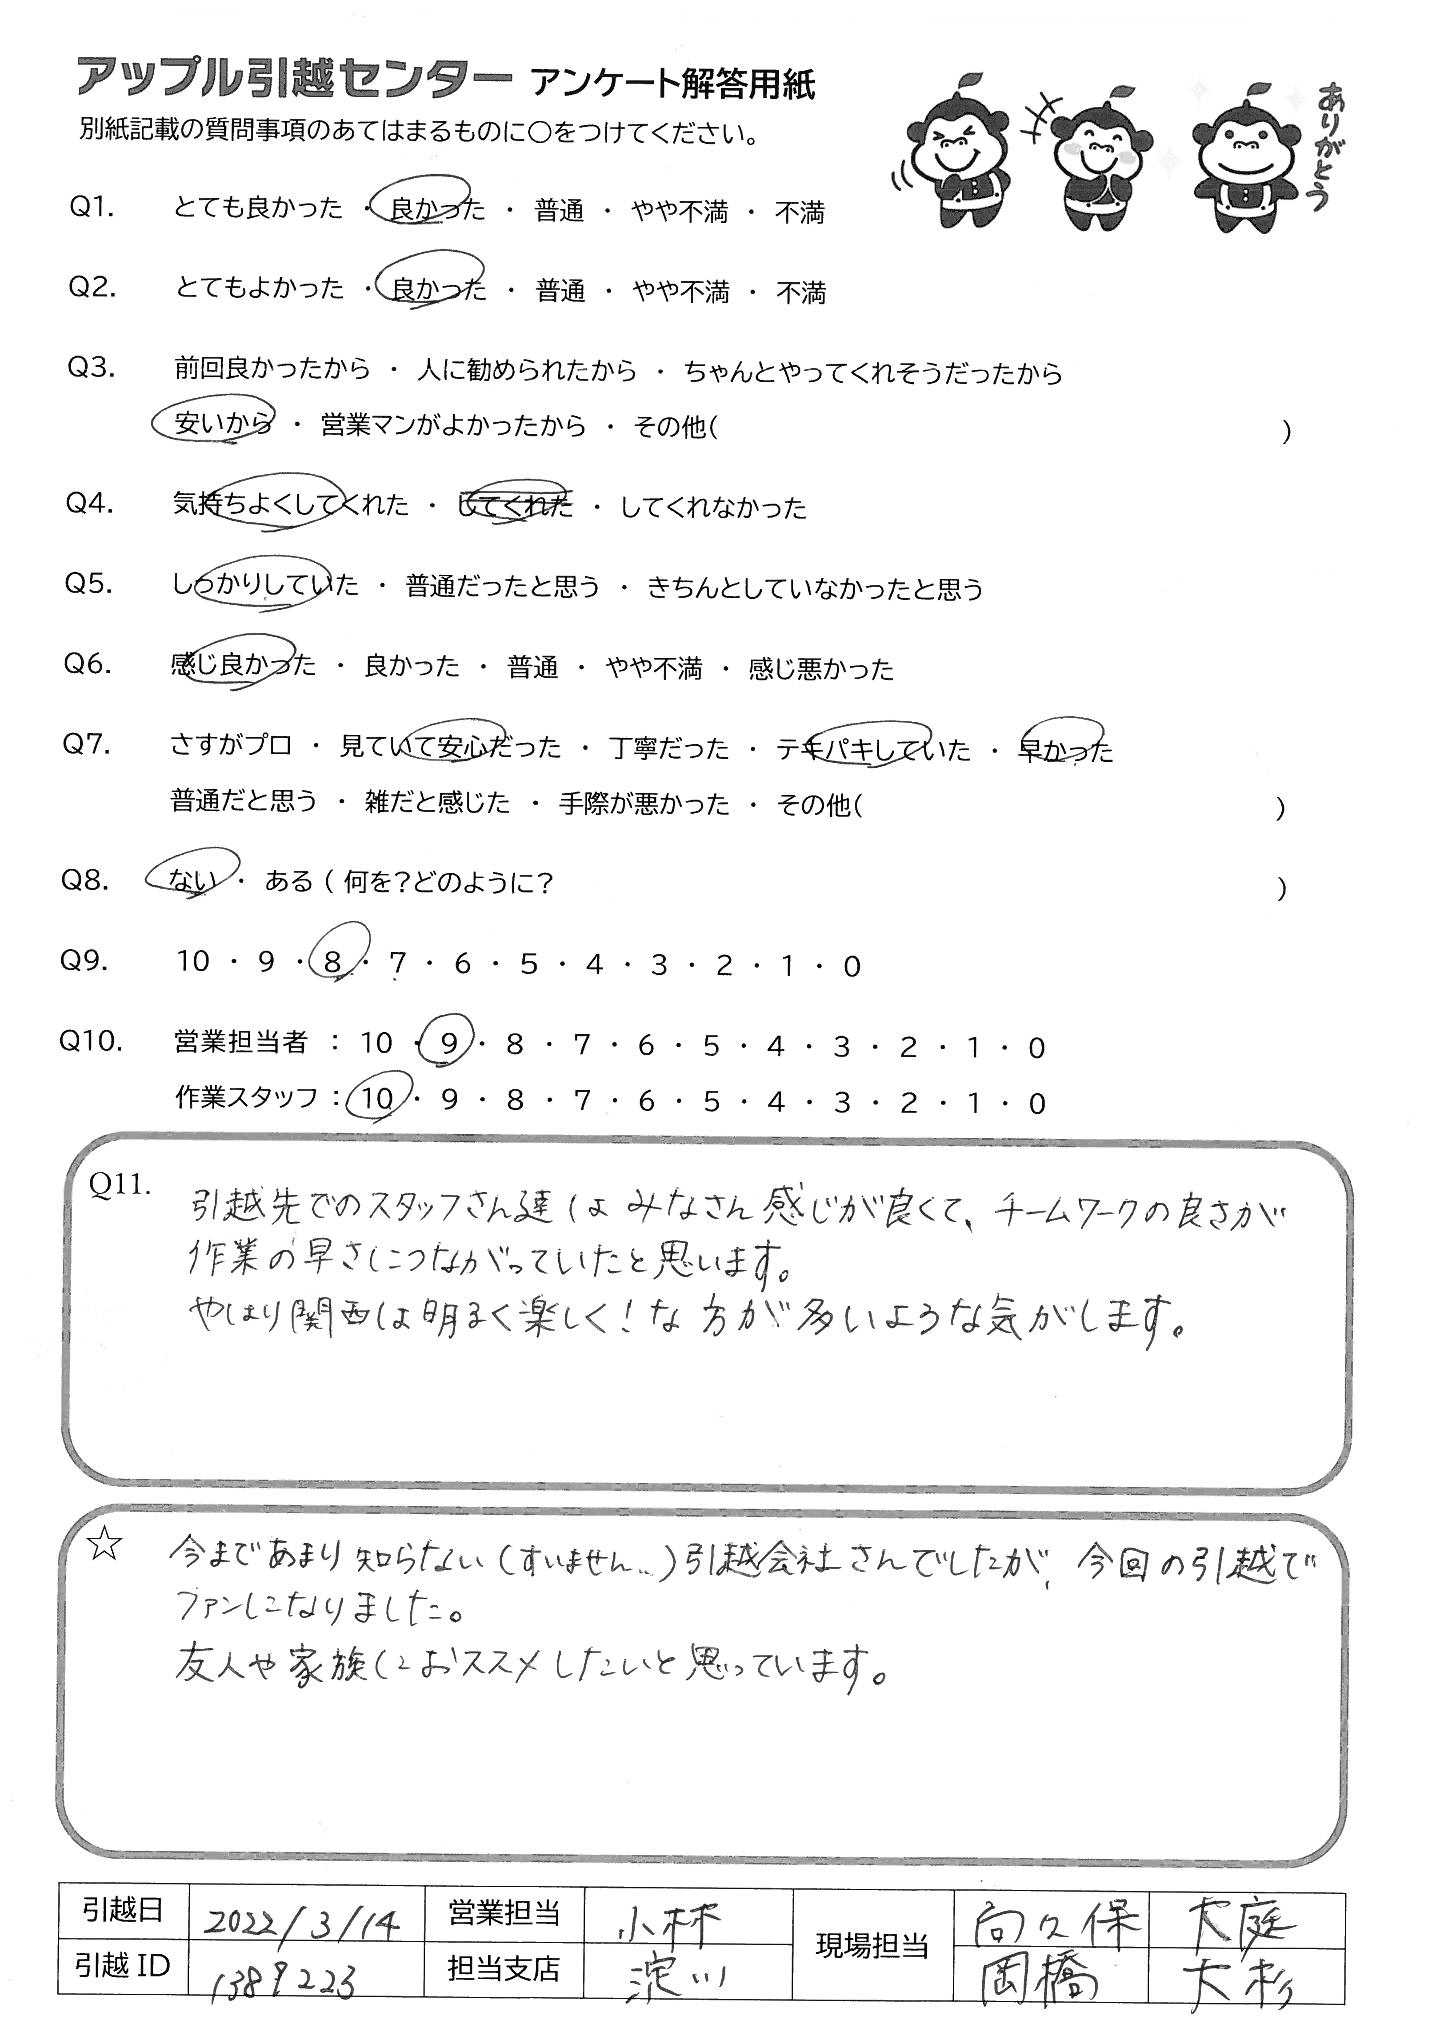 アップル引越センター アンケート解答用紙
別紙記載の質問事項のあてはまるものに○をつけてください。
ありがとう
Q1. とても良かった ・ 良かった ・ 普通 ・ やや不満 ・ 不満
Q2. とてもよかった ・ 良かった ・ 普通 ・ やや不満 ・ 不満
Q3. 前回良かったから ・ 人に勧められたから ・ ちゃんとやってくれそうだったから
安いから ・ 営業マンがよかったから ・ その他( )
Q4. 気持ちよくしてくれた ・ してくれた ・ してくれなかった
Q5. しっかりしていた ・ 普通だったと思う ・ きちんとしていなかったと思う
Q6. 感じ良かった ・ 良かった ・ 普通 ・ やや不満 ・ 感じ悪かった
Q7. さすがプロ ・ 見ていて安心だった ・ 丁寧だった ・ テキパキしていた ・ 早かった
普通だと思う ・ 雑だと感じた ・ 手際が悪かった ・ その他( )
Q8. ない ・ ある ( 何を?どのように? )
Q9. 10 ・ 9 ・ 8 ・ 7 ・ 6 ・ 5 ・ 4 ・ 3 ・ 2 ・ 1 ・ 0
Q10. 営業担当者 : 10 ・ 9 ・ 8 ・ 7 ・ 6 ・ 5 ・ 4 ・ 3 ・ 2 ・ 1 ・ 0
作業スタッフ : 10 ・ 9 ・ 8 ・ 7 ・ 6 ・ 5 ・ 4 ・ 3 ・ 2 ・ 1 ・ 0
Q11. 引越先でのスタッフさん達は みなさん感じが良くて、チームワークの良さが
作業の早さにつながっていたと思います。
やはり関西は明るく楽しく!な方が多いような気がします。
☆ 今まであまり知らない(すいません..)引越会社さんでしたが、今回の引越で
ファンになりました。
友人や家族におススメしたいと思っています。
引越日 2022/3/14 営業担当 小林 現場担当 向久保 大庭
引越ID 1389223 担当支店 淀川 岡橋 大杉